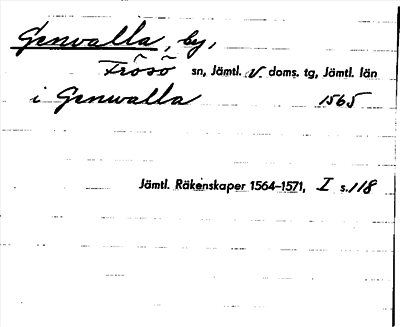 Genvalla, by,
Frösö sn, Jämtl. v. doms. tg, Jämtl. län
i Genwalla 1565
Jämtl. Räkenskaper 1564-1571, I s. 118